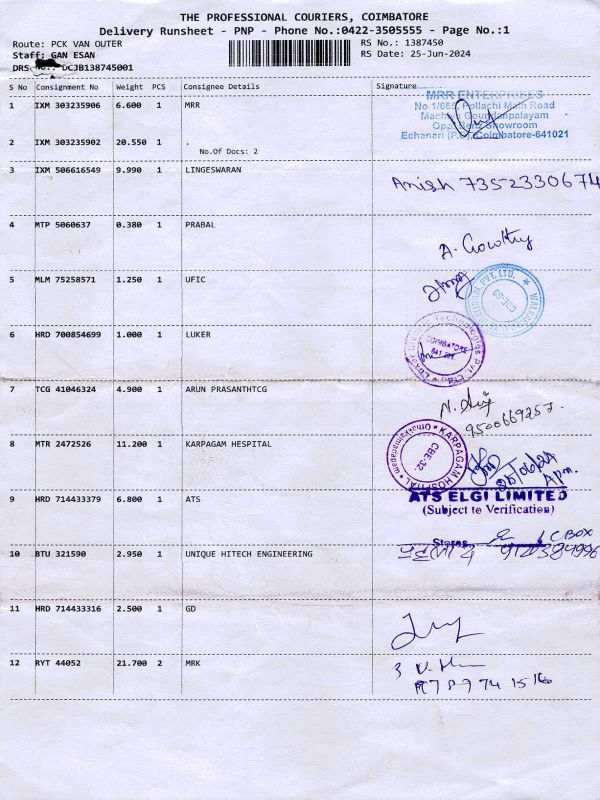 THE PROFESSIONAL COURIERS, COIMBATORE
Delivery Runsheet - PNP - Phone No.:0422-3505555 - Page No.:1
Route: PCK VAN OUTER
RS No.: 1387450
Staff: GAN ESAN
RS Date: 25-Jun-2024
DRS No.: DCJB138745001
S No Consignment No Weight PCS Consignee Details Signature
MRR ENTERPRISES
1 IXM 303235906 6.600 1 MRR
No.1/665, Pollachi Main Road
Machya Goundanpalayam
Opp. Benz Showroom
Echanari (P.O), Coimbatore-641021
2 IXM 303235902 20.550 1 .
No.Of Docs: 2
3 IXM 506616549 9.990 1 LINGESWARAN
Anish 7352330674
4 MTP 5060637 0.380 1 PRABAL
A. Chowthy
5 MLM 75258571 1.250 1 UFIC
PVT. LTD.
CBE-50
6 HRD 700854699 1.000 1 LUKER
Technologies Pvt. Ltd.
COIMBATORE
7 TCG 41046324 4.900 1 ARUN PRASANTHTCG
9500669257.
8 MTR 2472526 11.200 1 KARPAGAM HESPITAL
KARPAGAM HOSPITAL
Othakkalmandapam
CBE-32.
25/06/24
9 HRD 714433379 6.800 1 ATS
ATS ELGI LIMITED
(Subject to Verification)
Stores
1 C BOX
10 BTU 321590 2.950 1 UNIQUE HITECH ENGINEERING
11 HRD 714433316 2.500 1 GD
12 RYT 44052 21.700 2 MRK